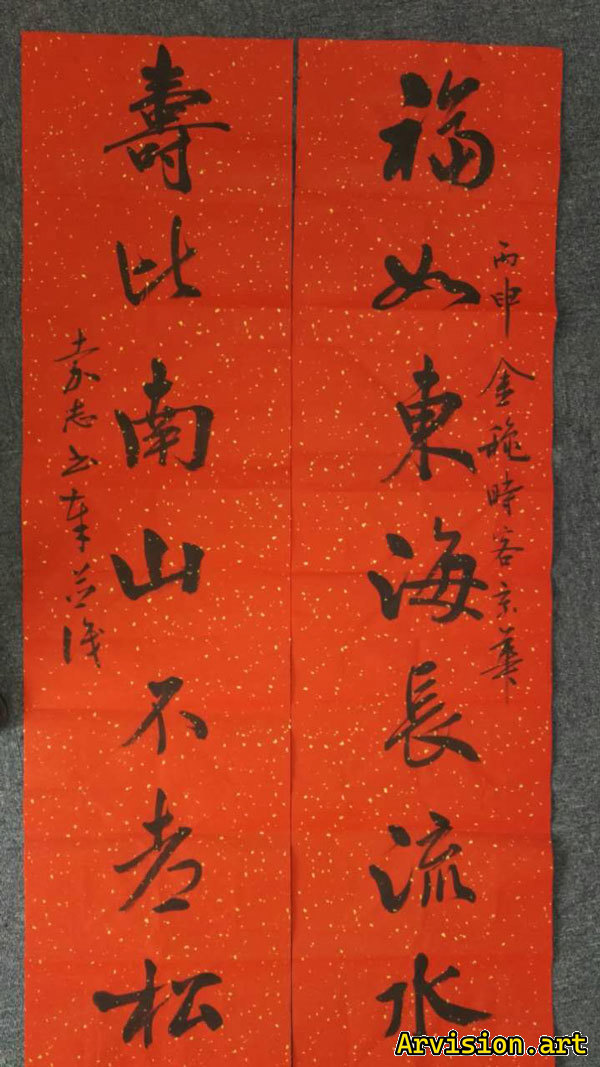 福如東海長流水
丙申金穐時客京華
壽比南山不老松
袁志
Arvision.art